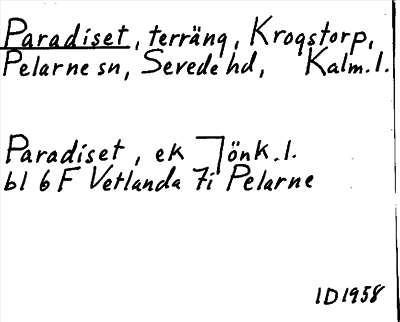 Paradiset, terräng, Krogstorp,
Pelarne sn, Sevede hd, Kalm. l.
Paradiset, ek Jönk. l.
bl 6 F Vetlanda 7i Pelarne
ID1958